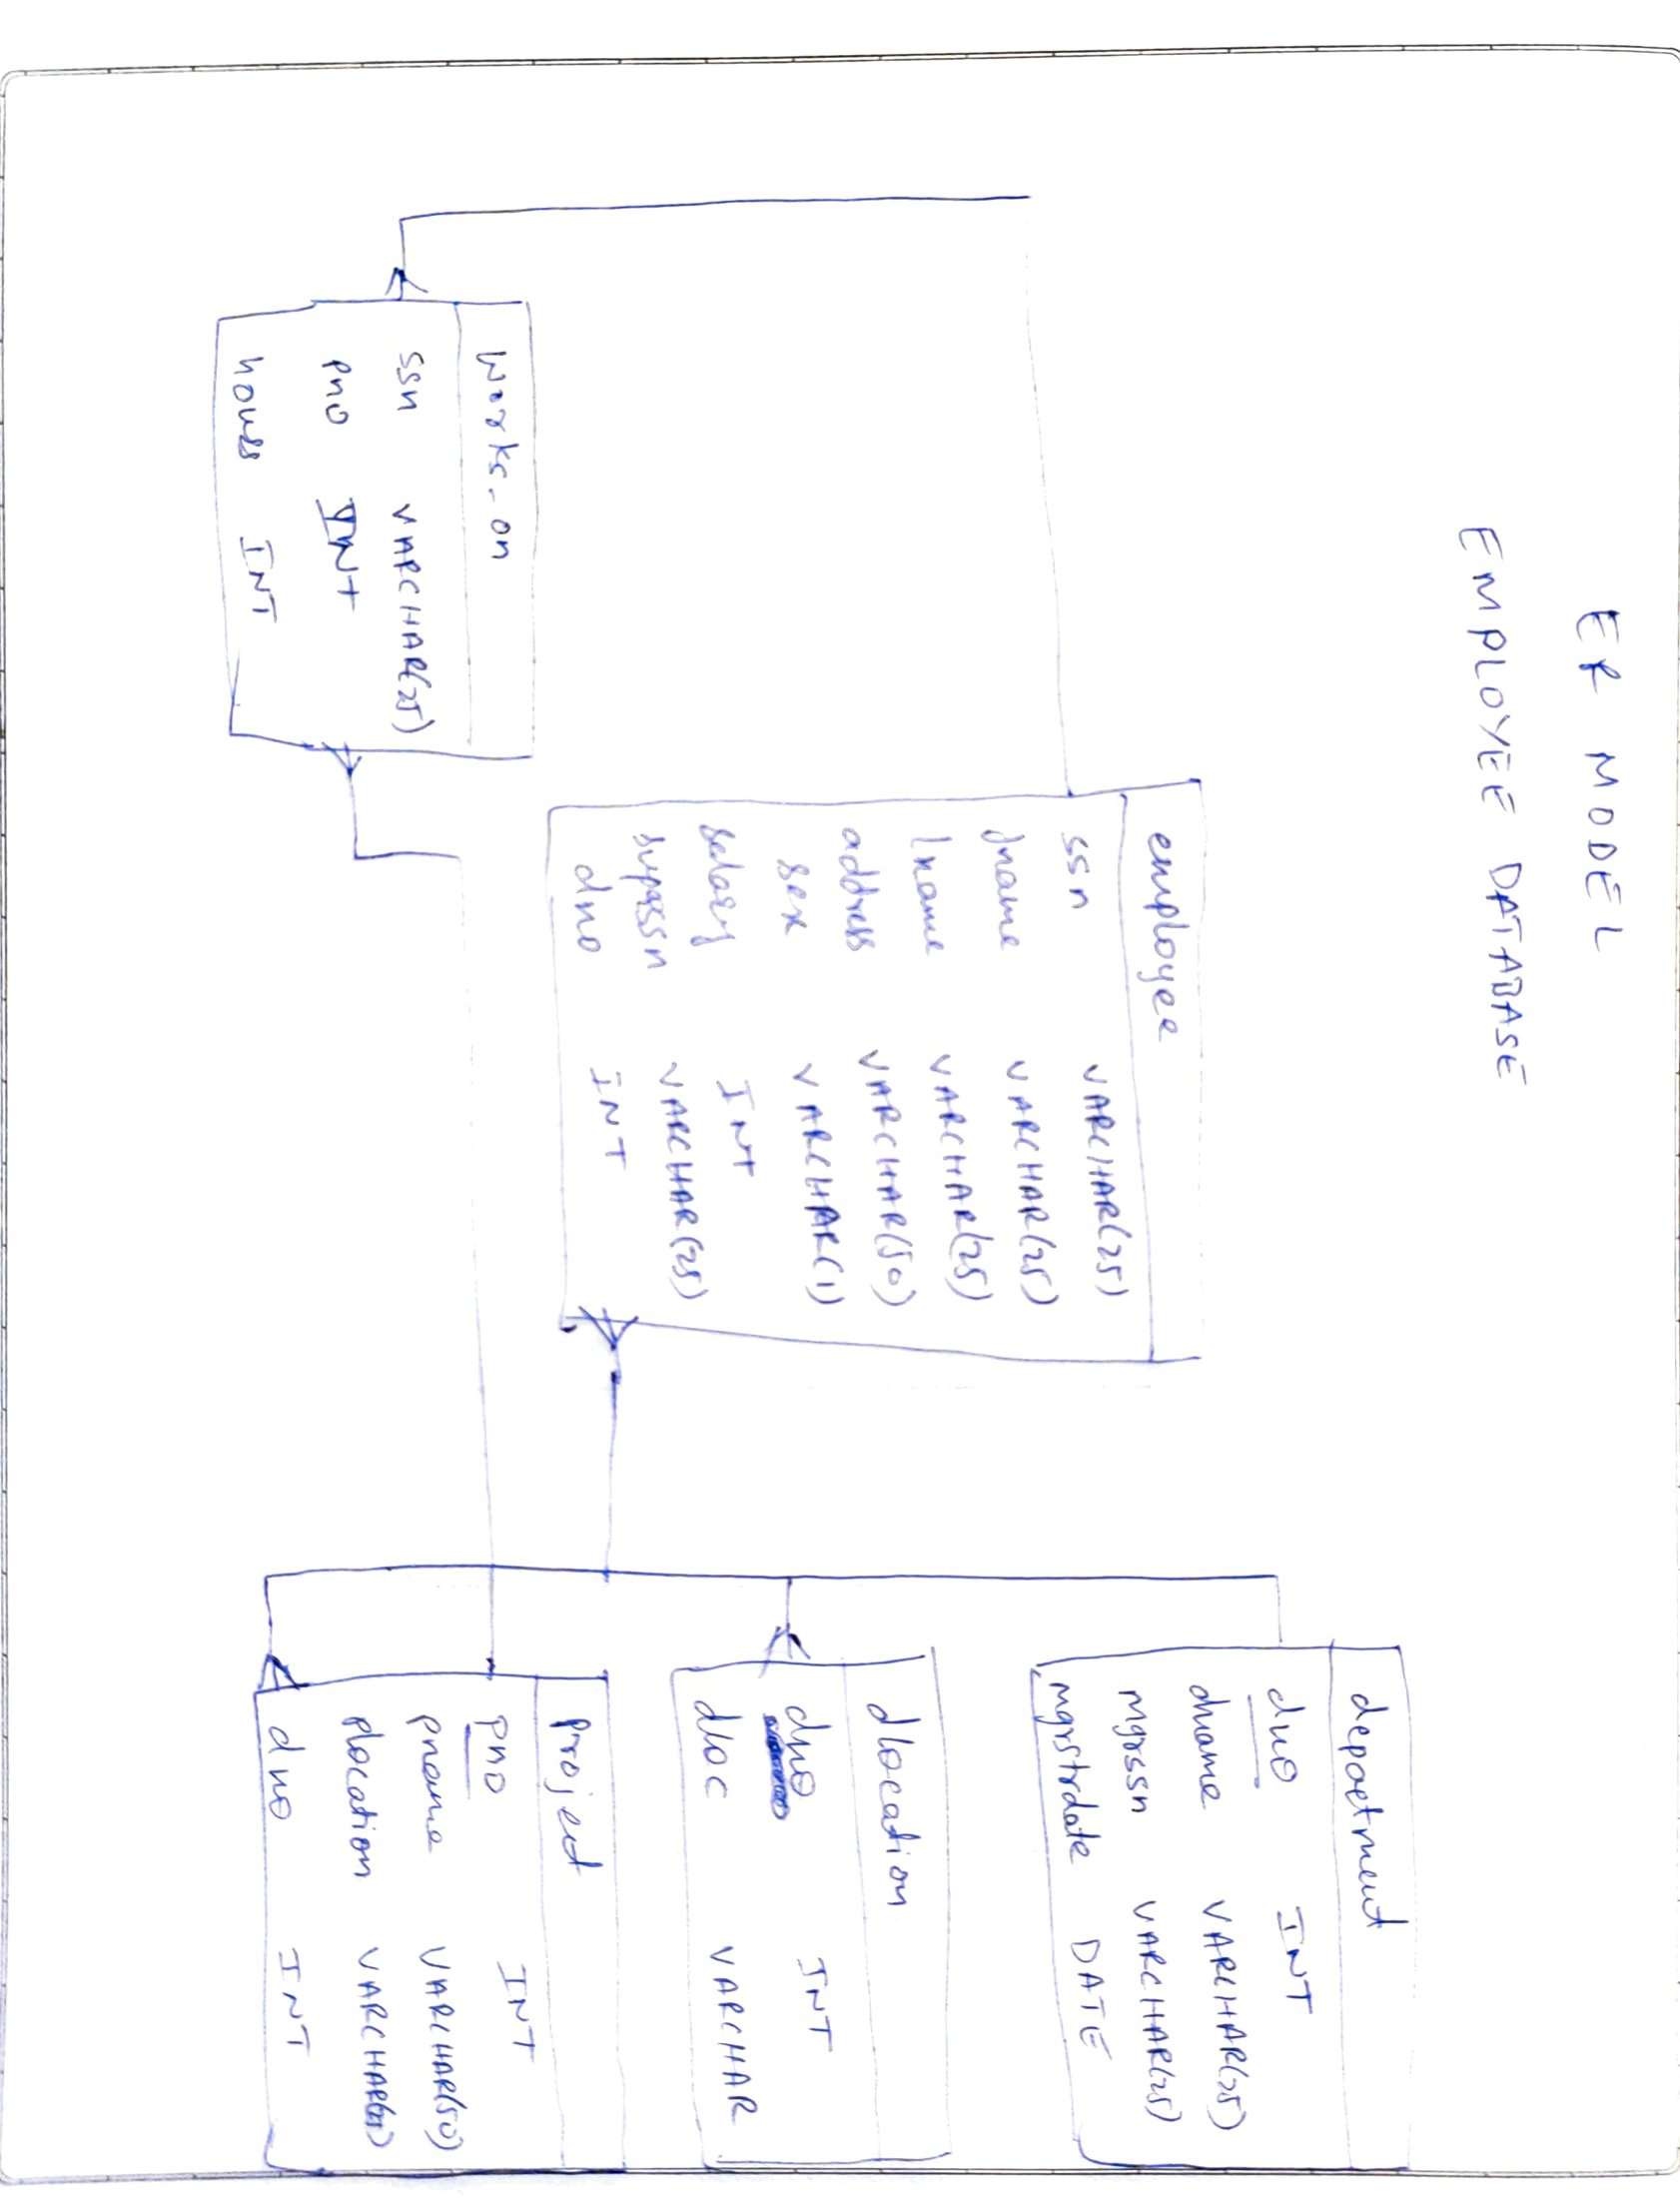 ER MODEL
EMPLOYEE DATABASE
employee
ssn VARCHAR(25)
fname VARCHAR(25)
lname VARCHAR(25)
address VARCHAR(50)
sex VARCHAR(1)
salary INT
superssn VARCHAR(25)
dno INT
works_on
ssn VARCHAR(25)
pno INT
hours INT
department
dno INT
dname VARCHAR(25)
mgrssn VARCHAR(25)
mgrstrdate DATE
dlocation
dno INT
dloc VARCHAR
project
pno INT
pname VARCHAR(50)
plocation
dno INT